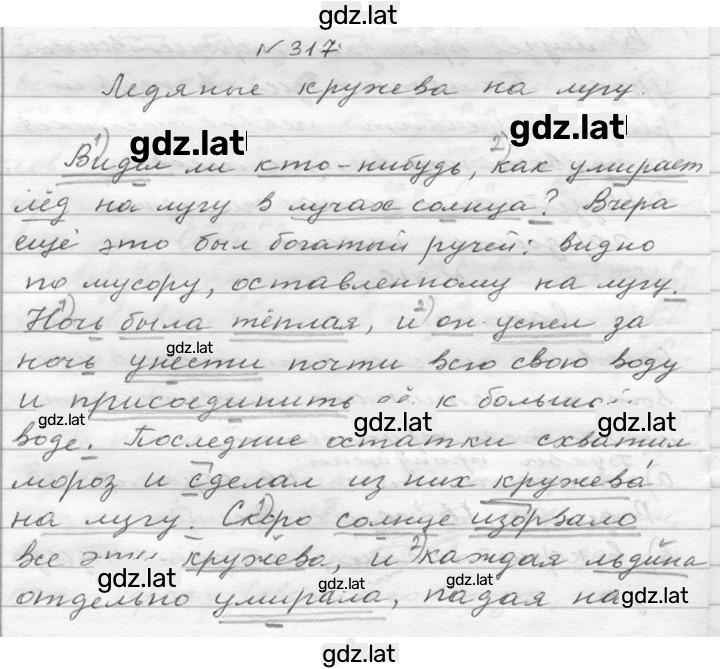 gdz.latl
№ 317.
Ледяные кружева на лугу.
1) gdz.lat 2) gdz.lat
Видел ли кто-нибудь, как умирает
лёд на лугу в лучах солнца? Вчера
ещё это был богатый ручей: видно
по мусору, оставленному на лугу.
1) 2)
Ночь была тёплая, и он успел за
gdz.lat
ночь унести почти всю свою воду
и присоединить к большой
gdz.lat gdz.lat gdz.lat
воде. Последние остатки схватил
мороз и сделал из них кружева
на лугу. Скоро солнце изорвало
все эти кружева, и каждая льдина
gdz.lat gdz.lat gdz.lat
отдельно умирала, падая на
gdz.lat